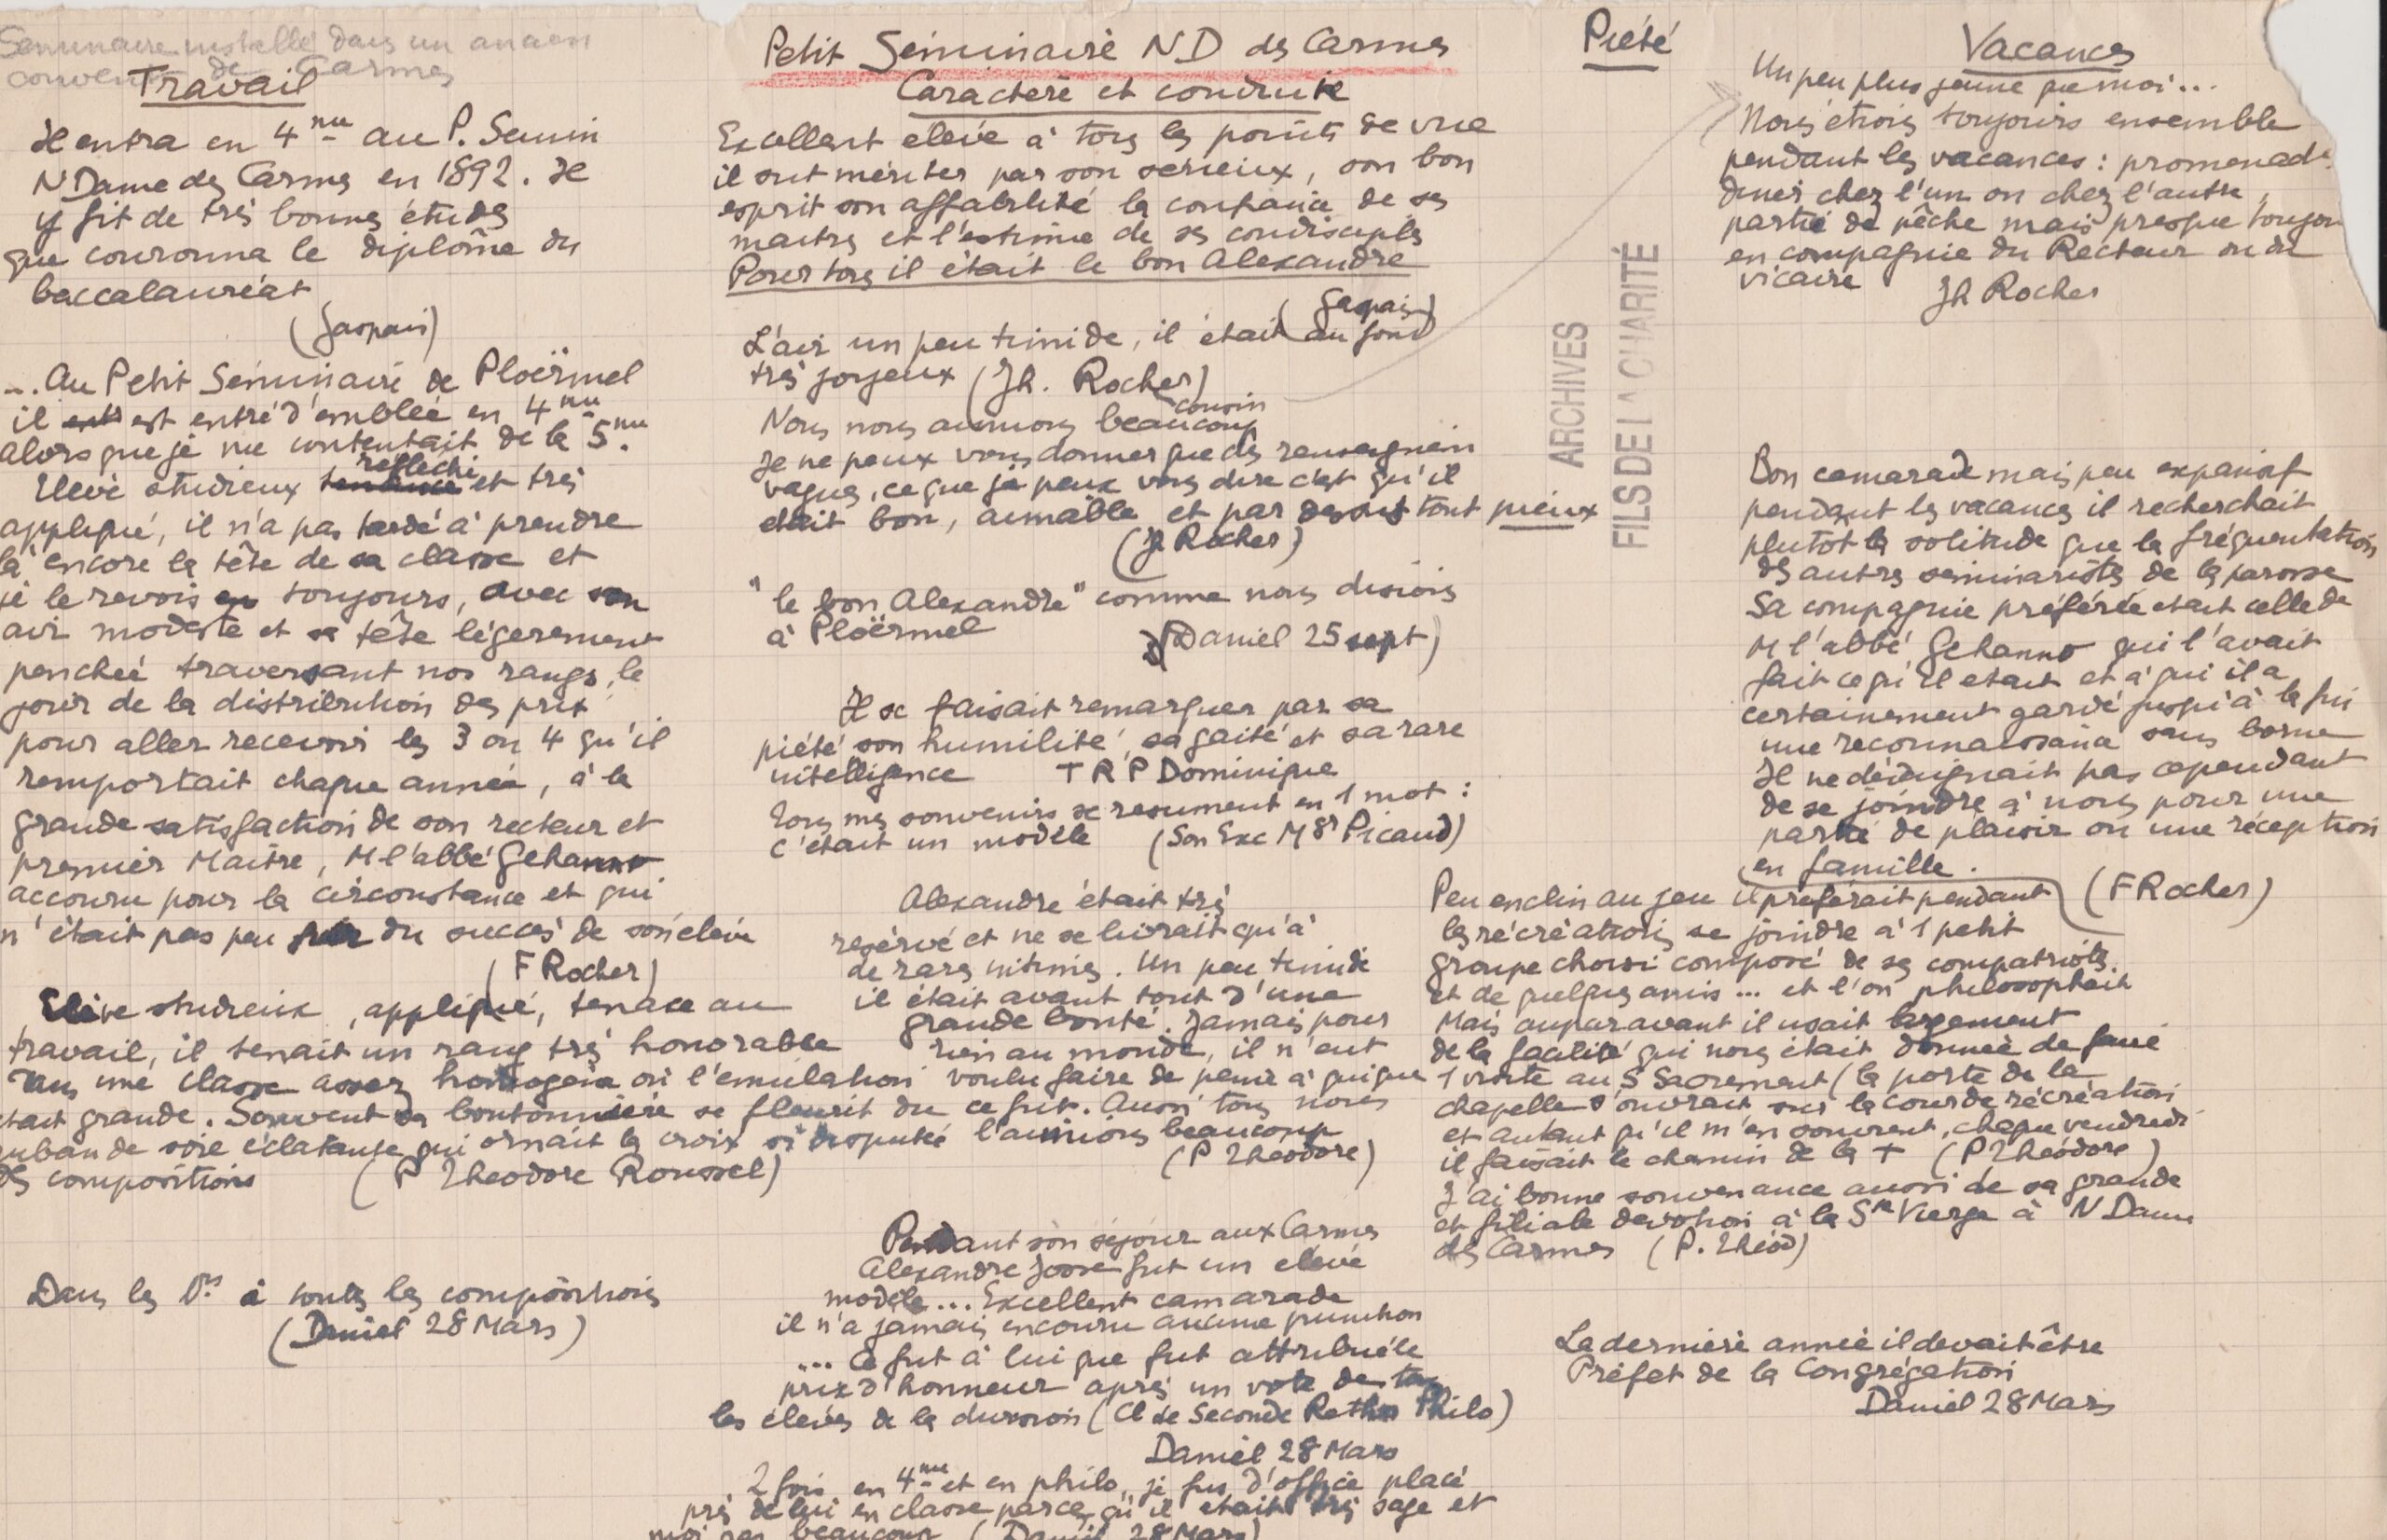 Seminaire installé dans un ancien
couvent de Carmes
Travail
Il entra en 4me au P. Semin
N Dame des Carmes en 1892. Il
y fit de très bonnes études
que couronna le diplôme du
baccalauréat
(Jaspais)
... Au Petit Séminaire de Ploërmel
il est entré d'emblée en 4me
alors que je me contentait de la 5me.
Elevé studieux réfléchi et très
appliqué, il n'a pas tardé à prendre
là encore la tête de sa classe et
je le revois toujours, avec son
air modeste et sa tête légerement
penchée traversant nos rangs, le
jour de la distribution des prix
pour aller recevoir les 3 ou 4 qu'il
remportait chaque année, à la
grande satisfaction de son recteur et
premier Maître, M l'abbé Gehanno
accouru pour la circonstance et qui
n'était pas peu fier du succès de son élève
(F Rocher)
Elève studieux, appliqué, tenace au
travail, il tenait un rang très honorable
dans une classe assez homogène où l'émulation
était grande. Souvent sa boutonnière se fleurit du
ruban de soie éclatante qui ornait la croix si disputée
des compositions (P Théodore Roussel)
Dans les Prs à toutes les compositions
(Daniel 28 Mars)
Petit Séminaire N D des Carmes
Caractère et conduite
Excellent élève à tous les points de vue
il sut mériter par son sérieux, son bon
esprit son affabilité la confiance de ses
maitres et l'estime de ses condisciples
Pour tous il était le bon Alexandre
(Jaspais)
L'air un peu timide, il était au fond
très joyeux (Jh. Rocher)
cousin
Nous nous aimions beaucoup
Je ne peux vous donner que des renseignem
vagues, ce que je peux vous dire c'est qu'il
était bon, aimable et par dessus tout pieux
(Jh Rocher)
"le bon Alexandre" comme nous disions
à Ploërmel (Daniel 25 sept)
Il se faisait remarquer par sa
piété son humilité, sa gaité et sa rare
intelligence T R P Dominique
Tous mes souvenirs se resument en 1 mot :
c'était un modèle (Son Exc Mgr Picaud)
Alexandre était très
reservé et ne se livrait qu'à
de rares intimes. Un peu timide
il était avant tout d'une
grande bonté. Jamais pour
rien au monde, il n'eut
voulu faire de peine à quique
ce fut. Aussi tous nous
l'aimions beaucoup
(P Théodore)
Pendant son séjour aux Carmes
Alexandre Josse fut un élève
modèle... Excellent camarade
il n'a jamais encouru aucune punition
... Ce fut à lui que fut attribué le
prix d'honneur après un vote de tous
les élèves de la division (Cl de Seconde Reth Philo)
Daniel 28 Mars
2 fois, en 4me et en philo, je fus d'office placé
près de lui en classe parce qu'il était très sage et
moi pas beaucoup (Daniel 28 Mars)
Piété
ARCHIVES
FILS DE LA CHARITÉ
Vacances
Un peu plus jeune que moi...
Nous étions toujours ensemble
pendant les vacances : promenade
diner chez l'un ou chez l'autre,
partie de pêche mais presque toujou
en compagnie du Recteur ou du
vicaire Jh Rocher
Bon camarade mais peu expansif
pendant les vacances il recherchait
plutôt la solitude que la fréquentation
des autres seminaristes de la paroisse
Sa compagnie préférée était celle de
M l'abbé Gehanno qui l'avait
fait ce qu'il était et à qui il a
certainement gardé jusqu'à la fin
une reconnaissance sans borne
Il ne dédaignait pas cependant
de se joindre à nous pour une
partie de plaisir ou une réception
en famille.
(F Rocher)
Peu enclin au jeu il préférait pendant
les récréations se joindre à 1 petit
groupe choisi composé de ses compatriotes
et de quelques amis ... et l'on philosophait
Mais auparavant il usait largement
de la facilité qui nous était donnée de faire
1 visite au S Sacrement (la porte de la
chapelle s'ouvrait sur la cour de récréation
et autant qu'il m'en souvient, chaque vendredi
il faisait le chemin de la + (P Théodore)
J'ai bonne souvenance aussi de sa grande
et filiale dévotion à la Ste Vierge à N Dame
des Carmes (P. Théod)
La dernière année il devait être
Préfet de la Congrégation
Daniel 28 Mars